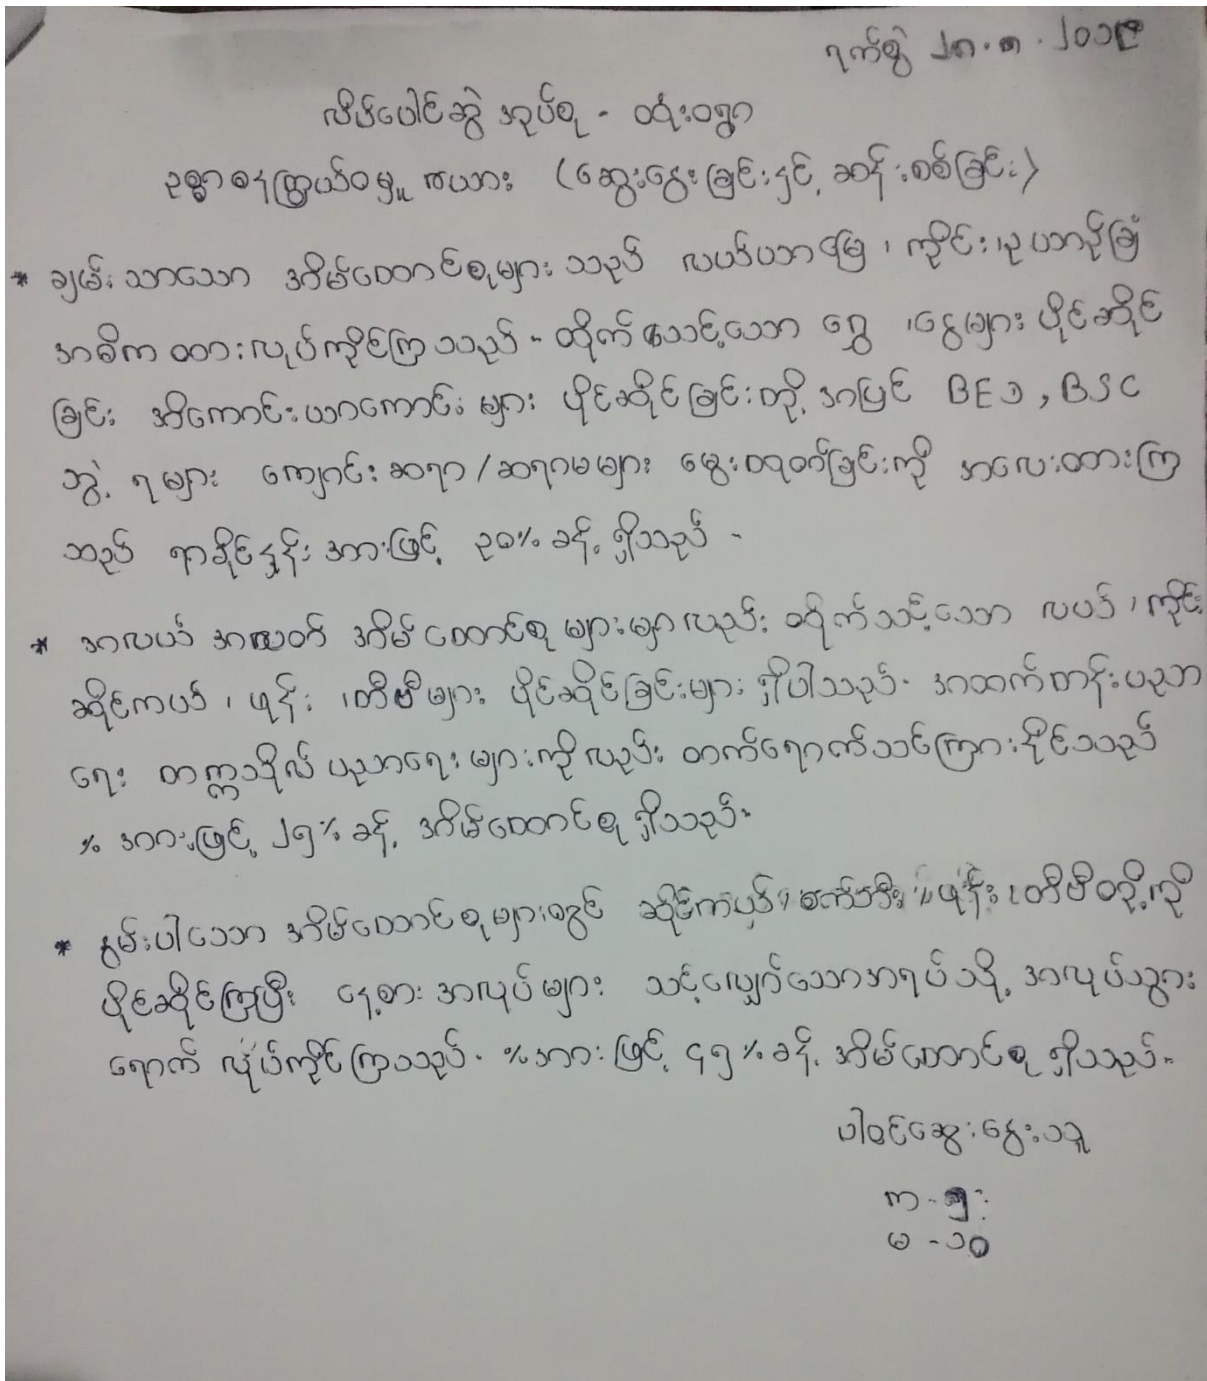 ရက်စွဲ ၂၈.၈.၂၀၁၉
လိပ်ပေါင်ဆွဲ အုပ်စု - ထုံးဝရွာ
ဥစ္စာဓနကြွယ်ဝမှု ဇယား (ဆွေးနွေးခြင်းနှင့် ဆန်းစစ်ခြင်း)
* ချမ်းသာသော အိမ်ထောင်စုများ သည် လယ်ယာမြေ ၊ ကိုင်း၊ ဥယာဉ်ခြံ
အဓိက ထားလုပ်ကိုင်ကြသည်. ထိုက်သင့်သော ရွှေ ၊ငွေများ ပိုင်ဆိုင်
ခြင်း အိကောင်းယာကောင်း များ ပိုင်ဆိုင်ခြင်းတို့ အပြင် BED , BSC
ဘွဲ့ ရများ ကျောင်းဆရာ/ဆရာမများ မွေးထုတ်ခြင်းကို အလေးထားကြ
သည် ရာခိုင်နှုန်း အားဖြင့် ၃၀% ခန့် ရှိသည် -
* အလယ် အလတ် အိမ်ထောင်စု များမှာလည်း ထိုက်သင့်သော လယ် ၊ ကိုင်း
ဆိုင်ကယ် ၊ ဖုန်း ၊တီဗီများ ပိုင်ဆိုင်ခြင်းများ ရှိပါသည်. အထက်တန်းပညာ
ရေး တက္ကသိုလ် ပညာရေး များကိုလည်း တက်ရောက်သင်ကြားနိုင်သည်
% အားဖြင့် ၂၅% ခန့် အိမ်ထောင်စု ရှိသည်.
* နွမ်းပါးသော အိမ်ထောင်စုများတွင် ဆိုင်ကယ် ၊ စက်ဘီး ၊ ဖုန်း ၊တီဗီတို့ကို
ပိုင်ဆိုင်ကြပြီး နေ့စား အလုပ်များ သင့်လျှော်သောအရပ်သို့ အလုပ်သွား
ရောက် လုပ်ကိုင်ကြသည်. %အား ဖြင့် ၄၅% ခန့် အိမ်ထောင်စု ရှိသည်.
ပါဝင်ဆွေးနွေးသူ
ကျ - ၅
မ - ၁၀